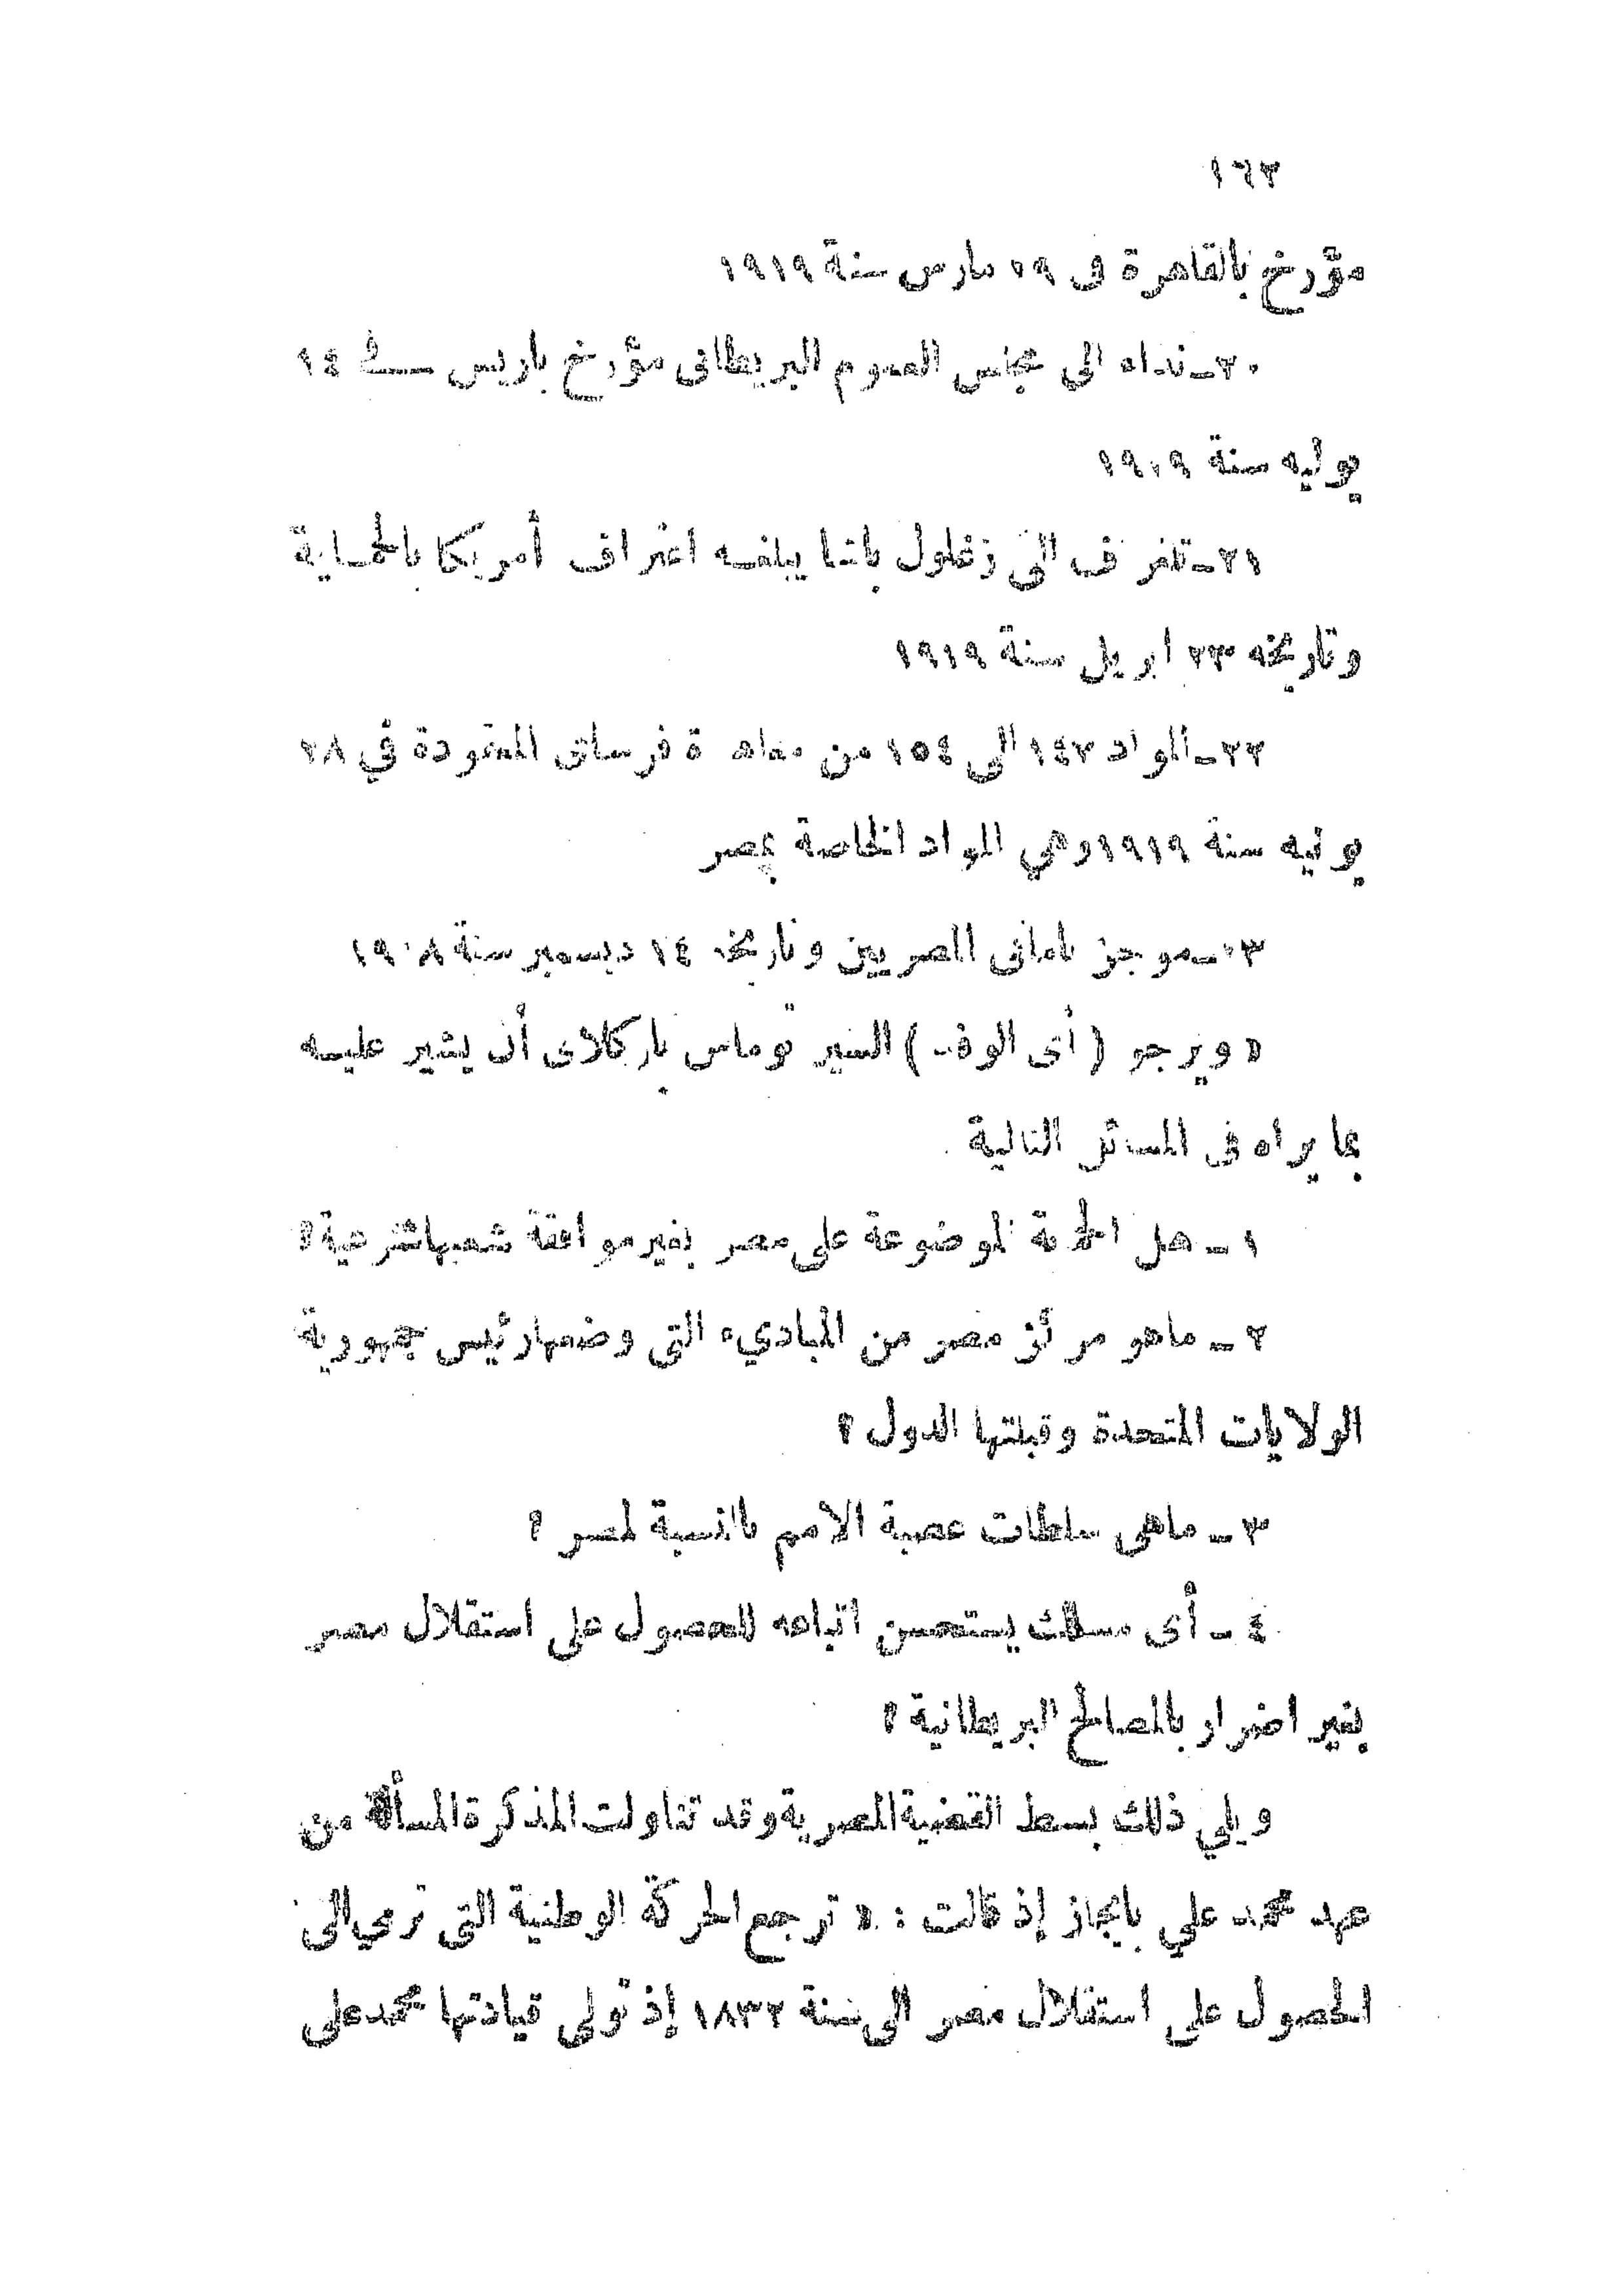 ١٦٢
مؤرخ بالقاهرة فى ٢٩ مارس سنة ١٩١٩
٢٠ـ نداء الى مجلس العموم البريطانى مؤرخ باريس فى ١٤
يوليه سنة ١٩١٩
٢١ـ تلغراف الى زغلول باشا يبلغه اعتراف أمريكا بالحماية
وتاريخه ٢٣ ابريل سنة ١٩١٩
٢٢ـ المواد ١٤٧ الى ١٥٤ من معاهدة فرساى المعقودة في ٢٨
يونيه سنة ١٩١٩ وهي المواد الخاصة بمصر
٢٣ـ موجز لامانى المصريين وتاريخه ١٤ ديسمبر سنة ١٩١٨
« ويرجو ( أى الوفد ) السير توماس باركلاى أن يشير عليه
بما يراه فى المسائل التالية
١ ـ هل الحماية الموضوعة على مصر بغير موافقة شعبها شرعية؟
٢ ـ ماهو مركز مصر من المباديء التى وضعها رئيس جمهورية
الولايات المتحدة وقبلتها الدول ؟
٣ ـ ماهى سلطات عصبة الامم بالنسبة لمصر ؟
٤ ـ أى مسلك يستحسن اتباعه للحصول على استقلال مصر
بغير اضرار بالمصالح البريطانية ؟
ويلي ذلك بسط القضية المصرية وقد تناولت المذكرة المسألة من
عهد محمد علي بايجاز إذ قالت : « ترجع الحركة الوطنية التى ترمي الى
الحصول على استقلال مصر الى سنة ١٨٣٢ إذ تولى قيادتها محمد على